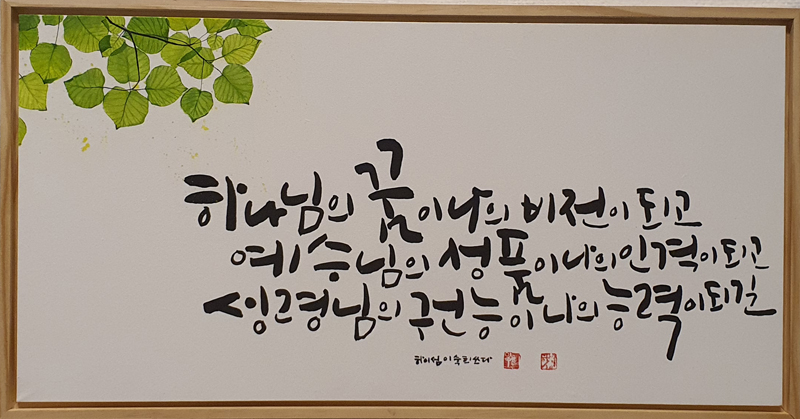 하나님의 꿈이 나의 비전이 되고
예수님의 성품이 나의 인격이 되고
성령님의 권능이 나의 능력이 되길
쓰다